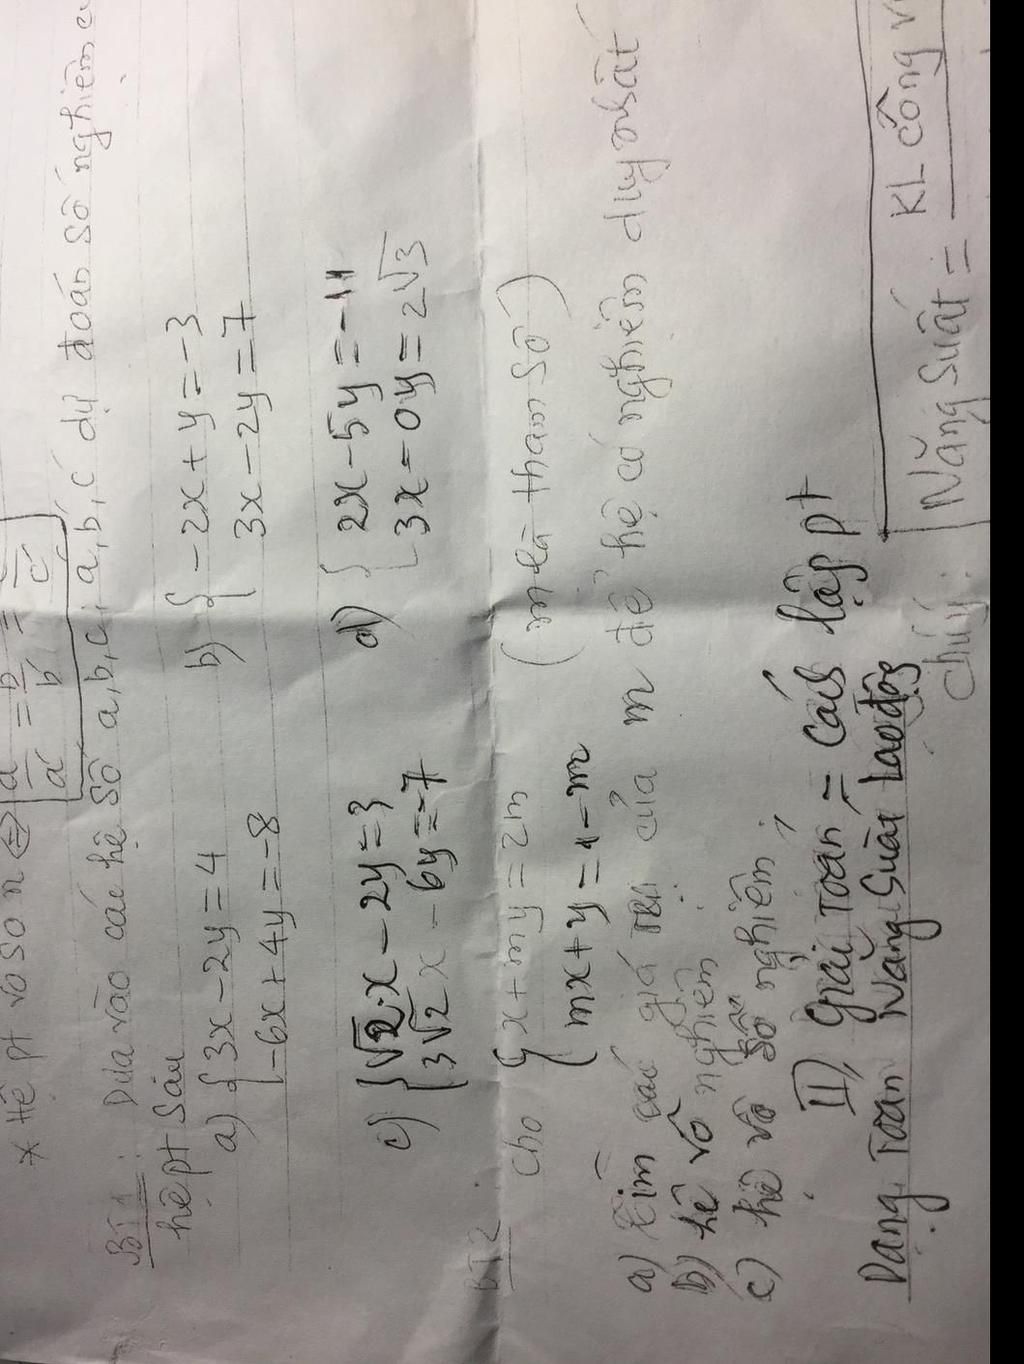 * Hệ pt vô số n ⇔ a/a' = b/b' = c/c'
BT1: Dựa vào các hệ số a, b, c, a', b', c' dự đoán số nghiệm
hệ pt sau
a) { 3x - 2y = 4
-6x + 4y = -8
b) { -2x + y = -3
3x - 2y = 7
c) { √2.x - 2y = 3
3√2 x - 6y = -7
d) { 2x - 5y = -11
3x - 0y = 2√3
BT2 Cho { x + my = 2m
mx + y = 1 - m
(m là tham số)
a) Tìm các giá trị của m để hệ có nghiệm duy nhất
b) hệ vô nghiệm
c) hệ vô số nghiệm
II) Giải Toán = cách lập pt
Dạng Toán Năng Suất Lao động
chú ý:
Năng Suất = KL công